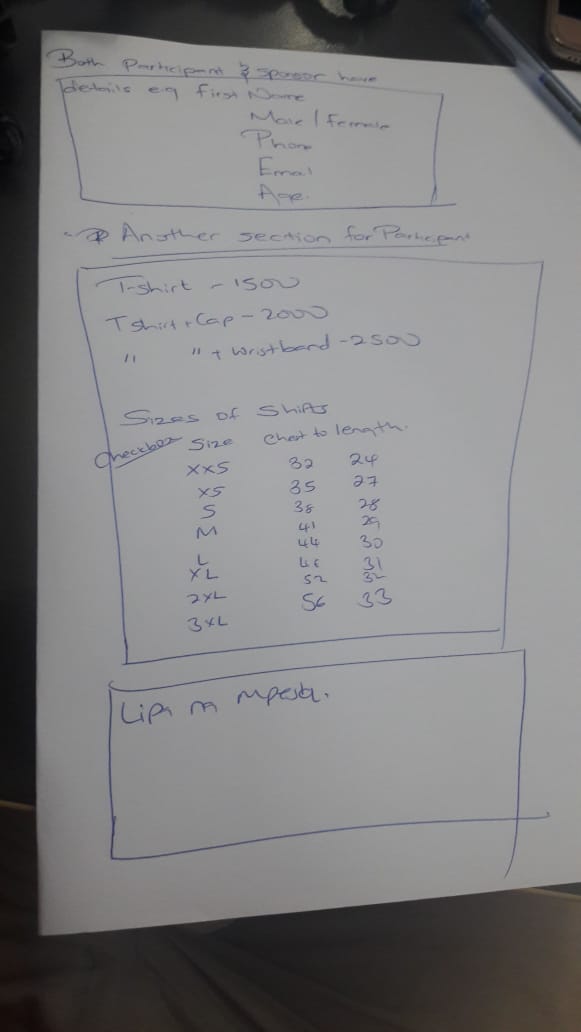 Both Participant & sponsor have
details e.g First Name
Male / Female
Phone
Email
Age.
Another section for Participant
T-shirt - 1500
T shirt + Cap - 2000
" " + wristband - 2500
Sizes of Shirts
Checkbox Size Chest to length.
XXS 32 24
XS 35 27
S 38 28
M 41 29
44 30
L 31
XL 52 32
2XL 56 33
3XL
Lipa na mpesa.